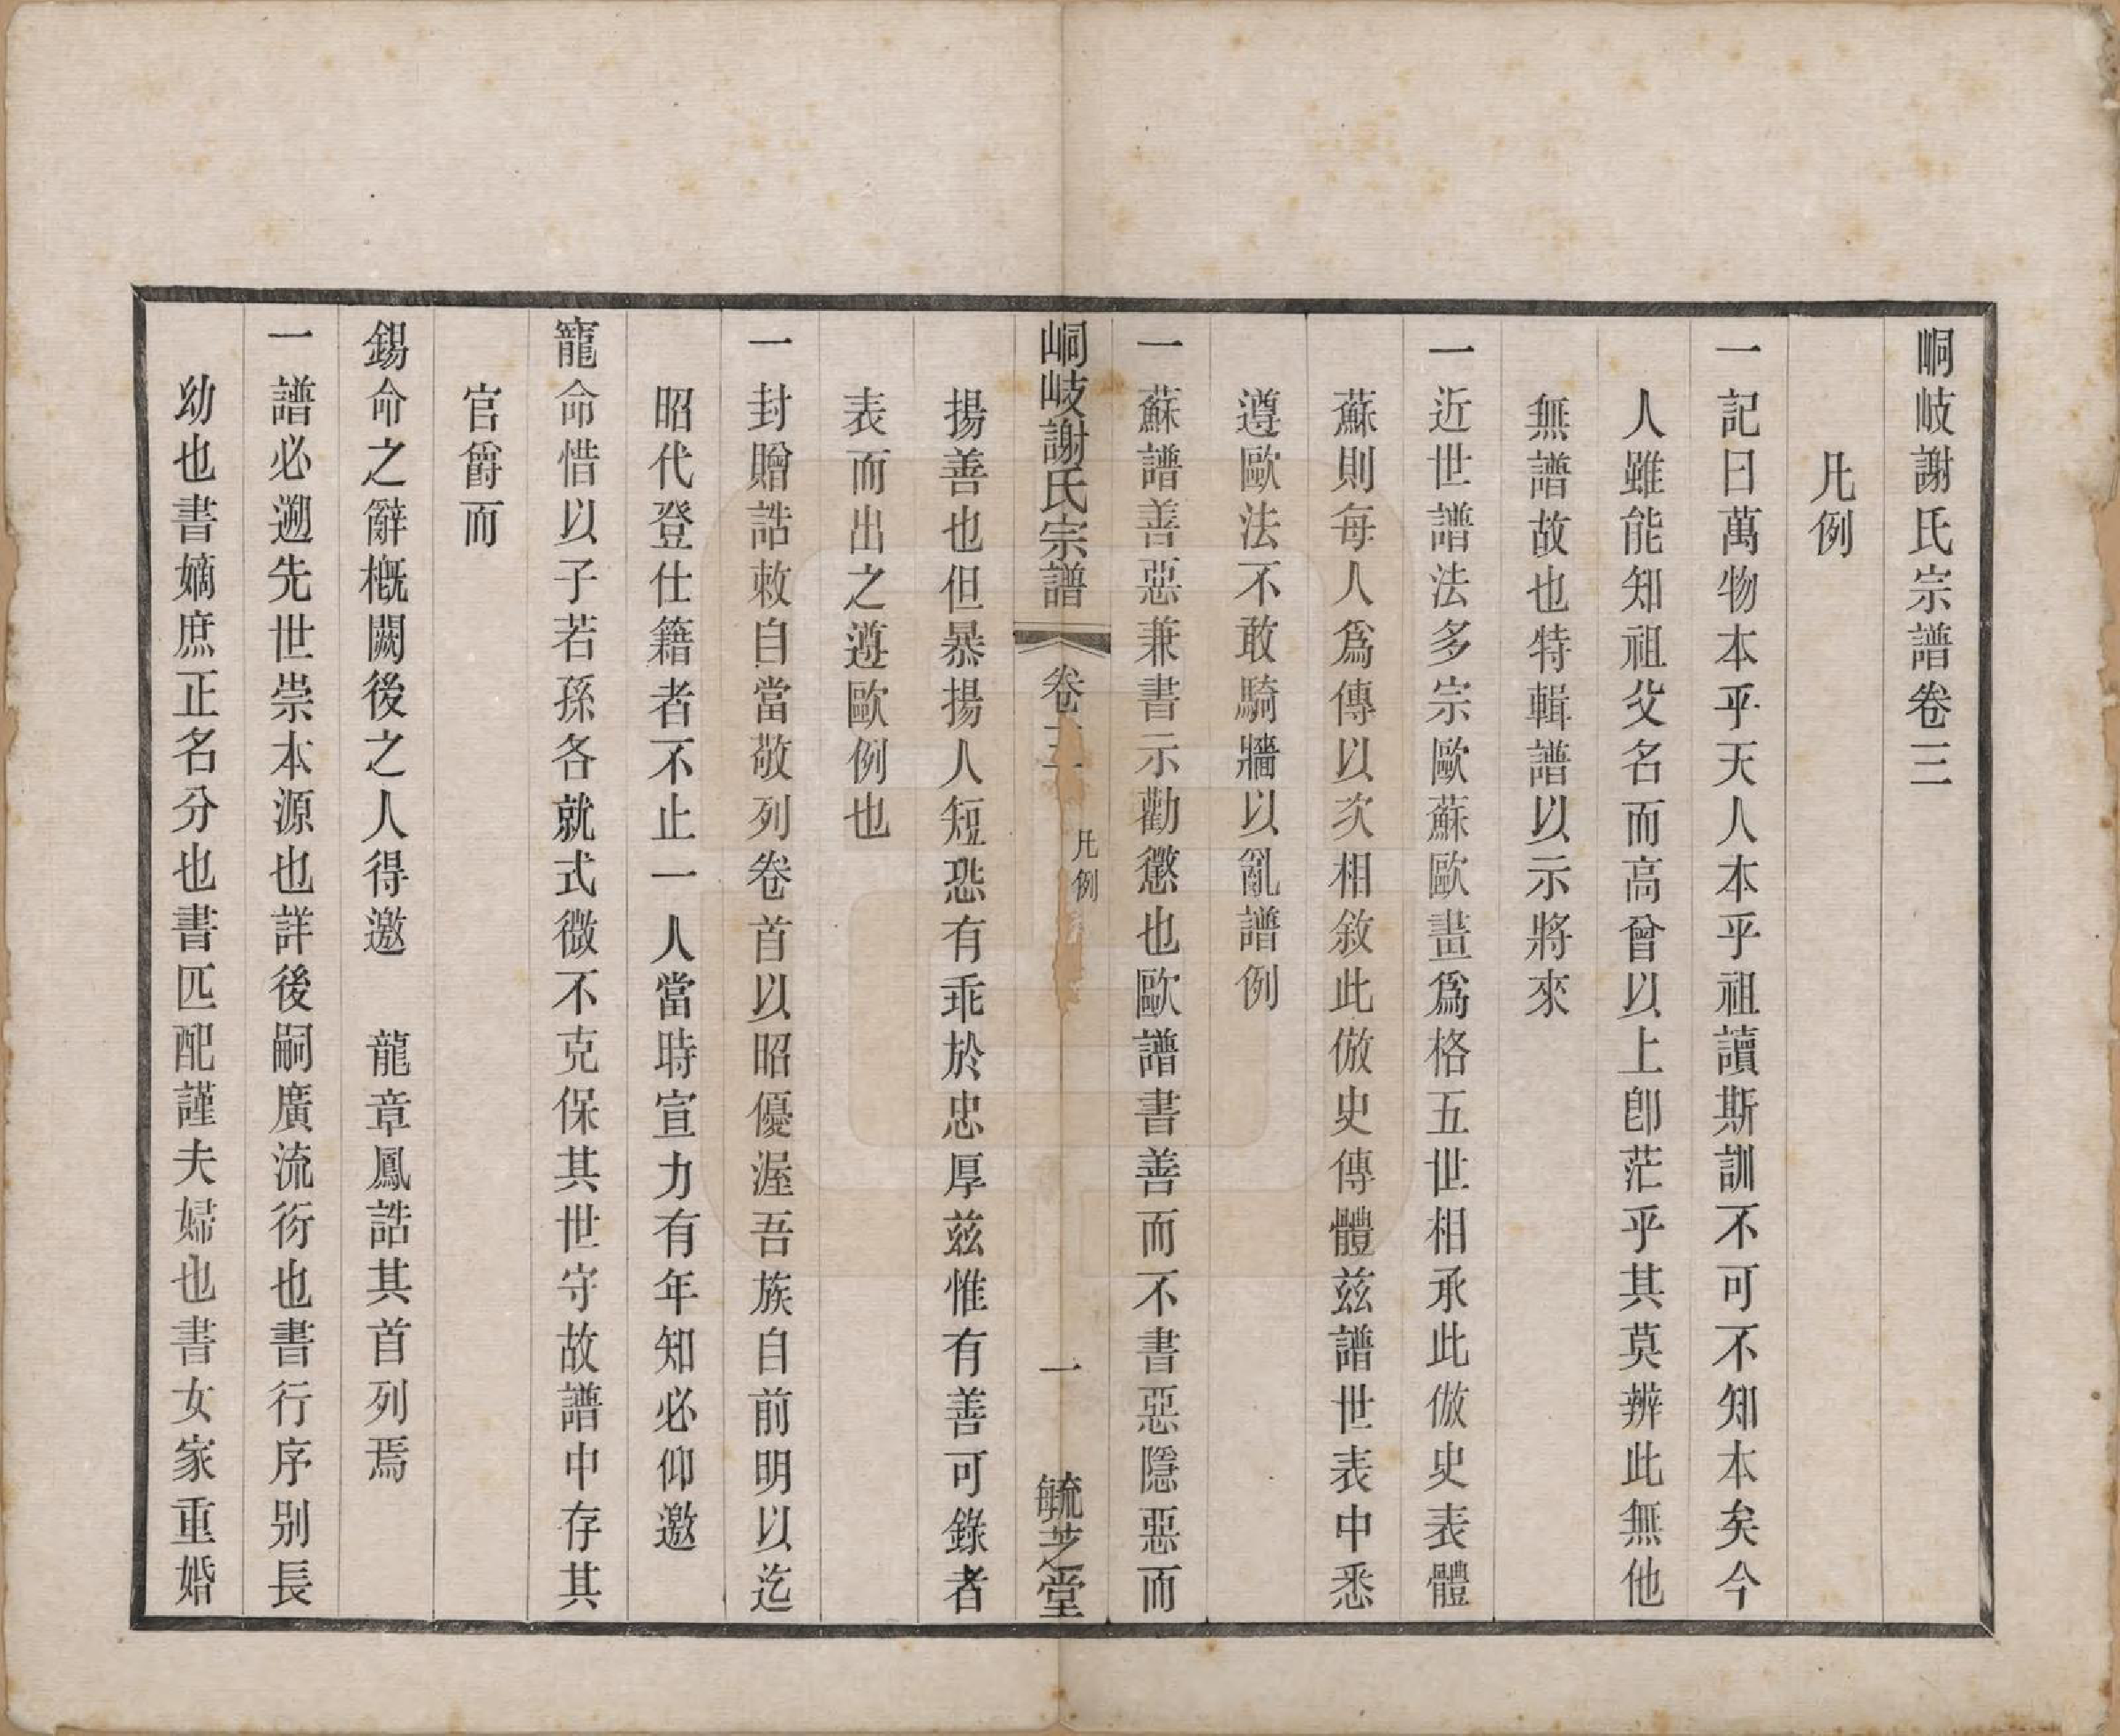 峒岐謝氏宗譜卷三
凡例
一記曰萬物本乎天人本乎祖讀斯訓不可不知本矣今
人雖能知祖父名而高曾以上卽茫乎其莫辨此無他
無譜故也特輯譜以示將來
一近世譜法多宗歐蘇歐畫爲格五世相承此倣史表體
蘇則每人爲傳以次相敘此倣史傳體兹譜世表中悉
遵歐法不敢騎牆以亂譜例
一蘇譜善惡兼書示勸懲也歐譜書善而不書惡隱惡而
峒岐謝氏宗譜 卷三 凡例 一 毓芝堂
揚善也但暴揚人短恐有乖於忠厚兹惟有善可錄者
表而出之遵歐例也
一封贈誥敕自當敬列卷首以昭優渥吾族自前明以迄
昭代登仕籍者不止一人當時宣力有年知必仰邀
寵命惜以子若孫各就式微不克保其世守故譜中存其
官爵而
錫命之辭槪闕後之人得邀 龍章鳳誥其首列焉
一譜必遡先世崇本源也詳後嗣廣流衍也書行序別長
幼也書嫡庶正名分也書匹配謹夫婦也書女家重婚